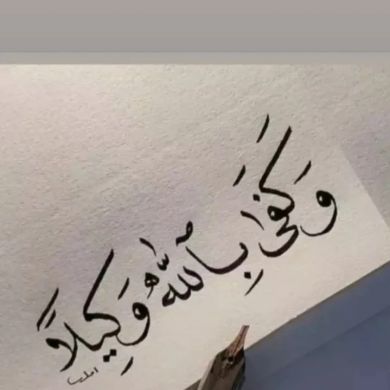 وَكَفَىٰ بِٱللَّهِ وَكِيلًا